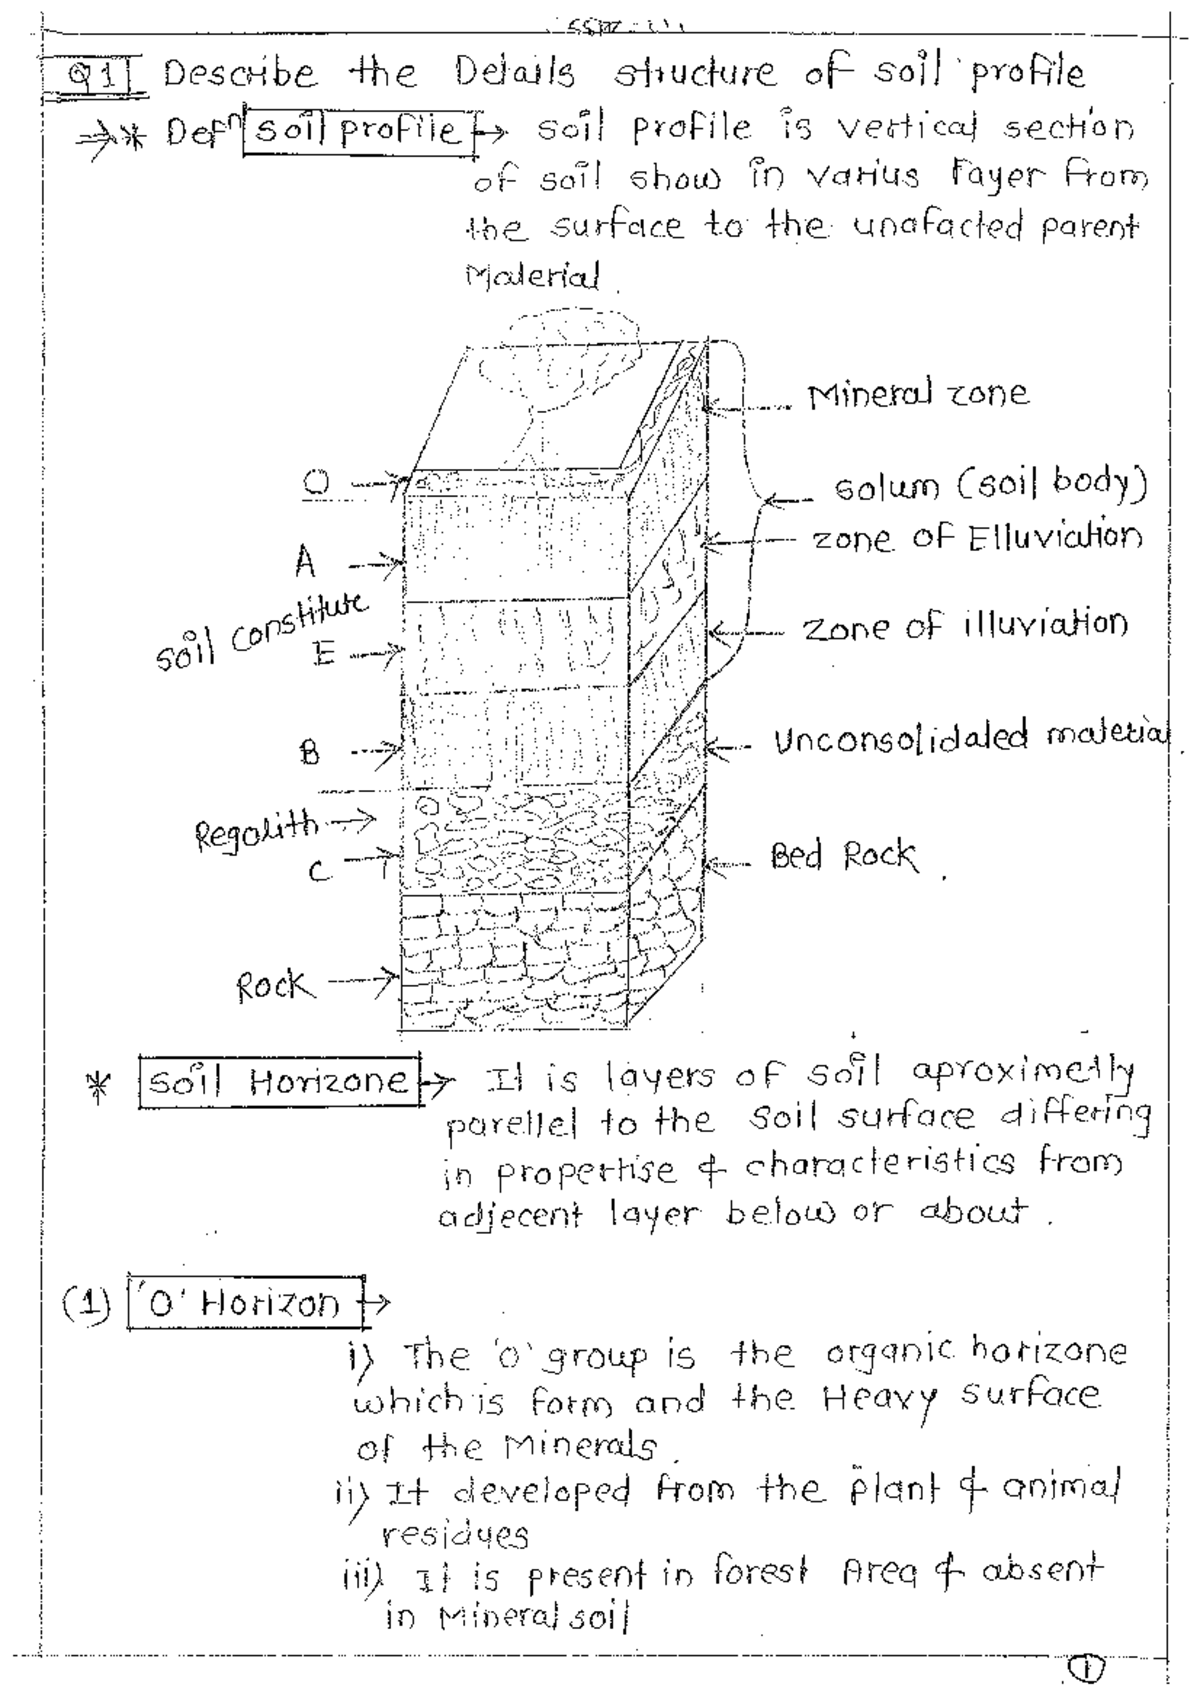 Q1 Describe the Details structure of soil profile
→* Defⁿ soil profile → soil profile is vertical section
of soil show in varius layer from
the surface to the unafacted parent
Material.
Mineral zone
O
solum (soil body)
zone of Elluviation
A
soil constitute
zone of illuviation
E
Unconsolidated material.
B
Regolith
C
Bed Rock.
Rock
* Soil Horizone → It is layers of soil aproximetly
parellel to the soil surface differing
in propertise & characteristics from
adjecent layer below or about.
(1) 'O' Horizon →
i) The 'O' group is the organic horizone
which is form and the Heavy surface
of the Minerals.
ii) It developed from the plant & animal
residues
iii) It is present in forest Area & absent
in Mineral soil
1